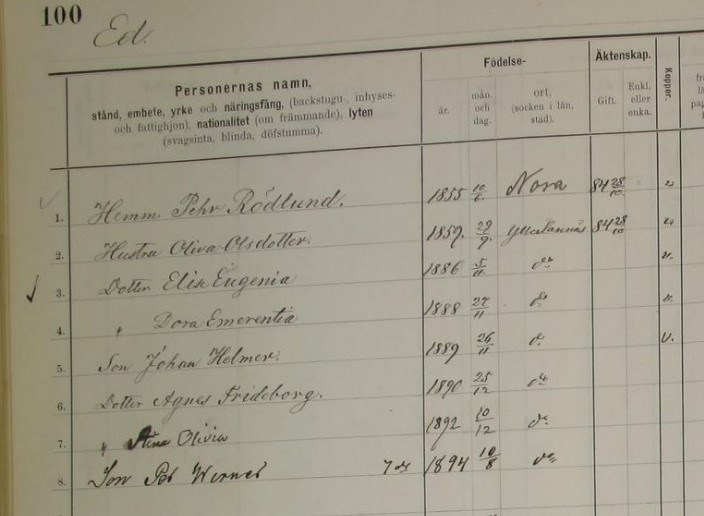 100
Ed.
Personernas namn,
stånd, embete, yrke och näringsfång, (backstugu-, inhyses-
och fattighjon), nationalitet (om främmande), lyten
(svagsinta, blinda, döfstumma).
Födelse-
år.
mån.
och
dag.
ort,
(socken i län,
stad).
Äktenskap.
Gift.
Enkl.
eller
enka.
Koppor.
1. Hemm. Pehr Rödlund. 1855 10/6. Nora 84 28/10. v.
2. Hustru Oliva Olsdotter. 1859. 29/9. Ytterlännäs 84 28/10 v.
3. Dotter Elin Eugenia 1886 5/11 do v.
4. " Dora Emerentia 1888 27/11 do v.
5. Son Johan Helmer. 1889 26/11 do v.
6. Dotter Agnes Frideborg. 1890 25/12 do
7. " Stina Olivia 1892 10/12 do
8. Son Per Werner 1894 10/8 do